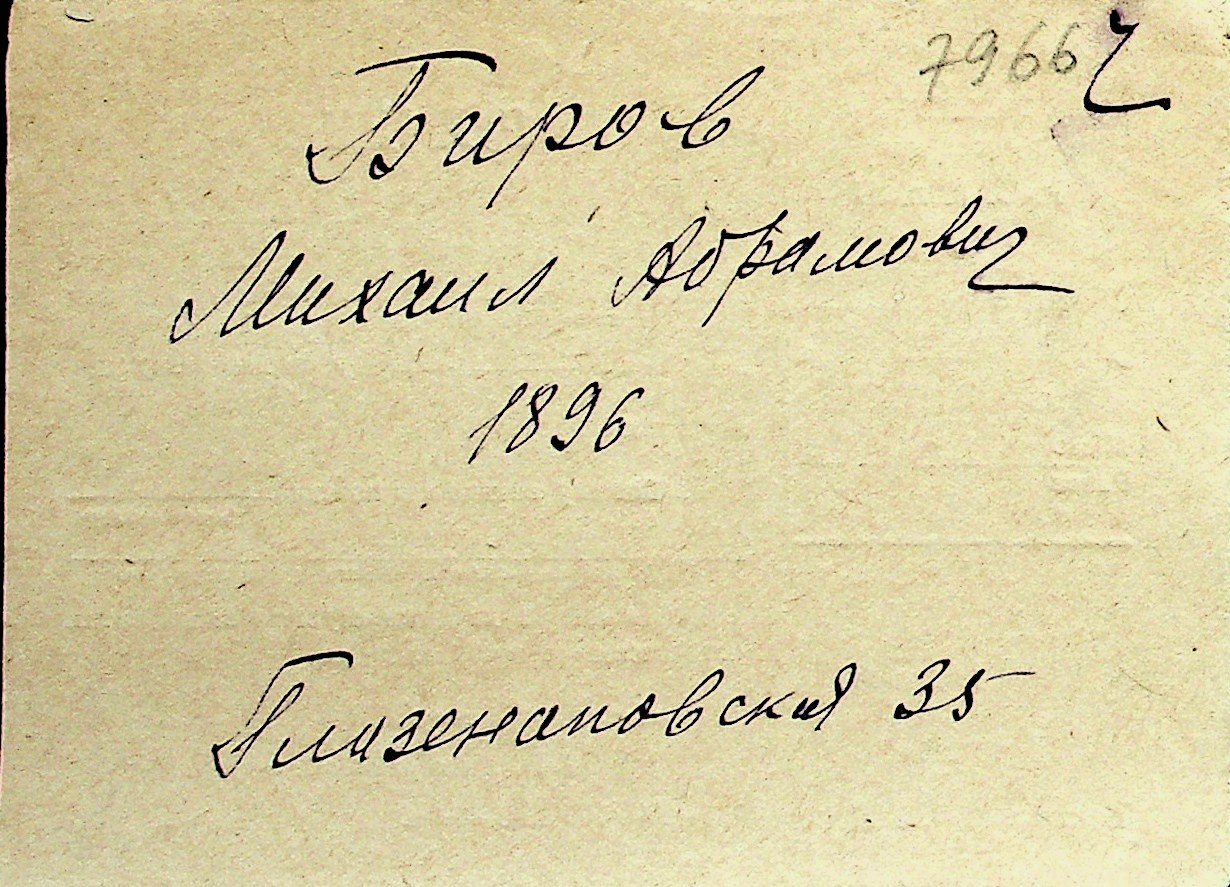 7966 ч
Биров
Михаил Абрамович
1896
Глазенаповская 35